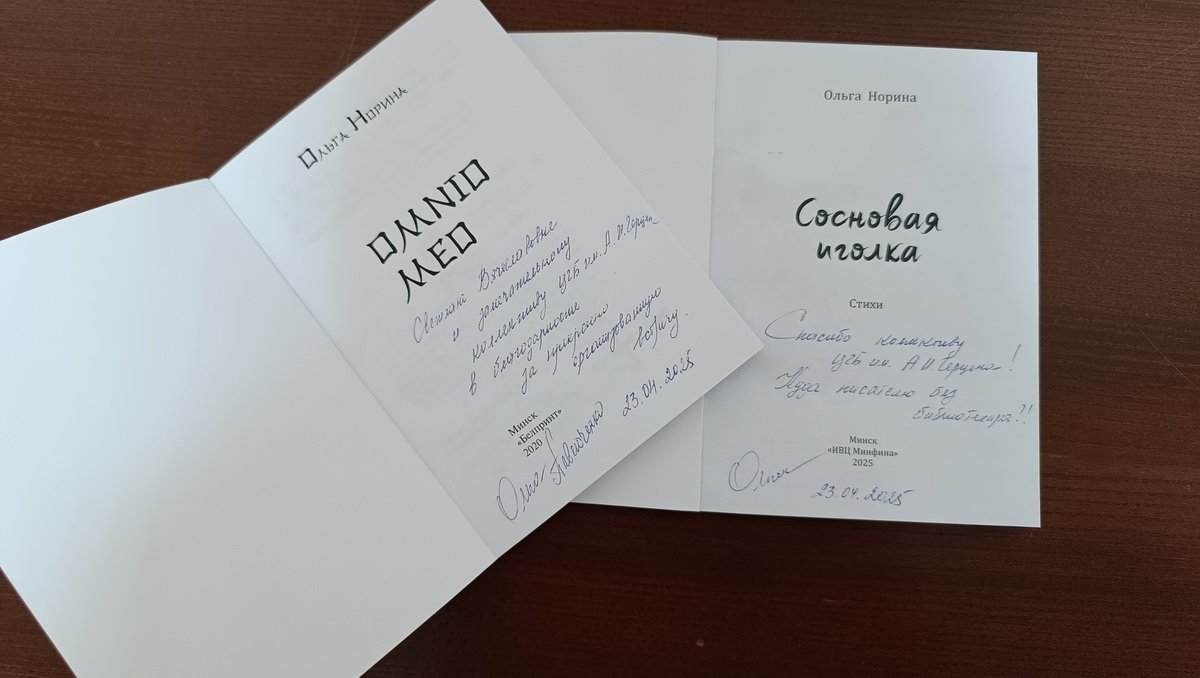 Ольга Норина
OMNIO
MEO
Светлане Вячеславовне
и замечательному
коллективу ЦГБ им. А. И. Герцена
в благодарности
за прекрасно
организованную
встречу.
Минск
«Белпринт»
2020
23.04.2025
Ольга
Ольга Норина
Сосновая
иголка
Стихи
Спасибо коллективу
ЦГБ им. А. И. Герцена!
Куда писателю без
библиотекаря?!
Минск
«ИВЦ Минфина»
2025
Ольга
23.04.2025